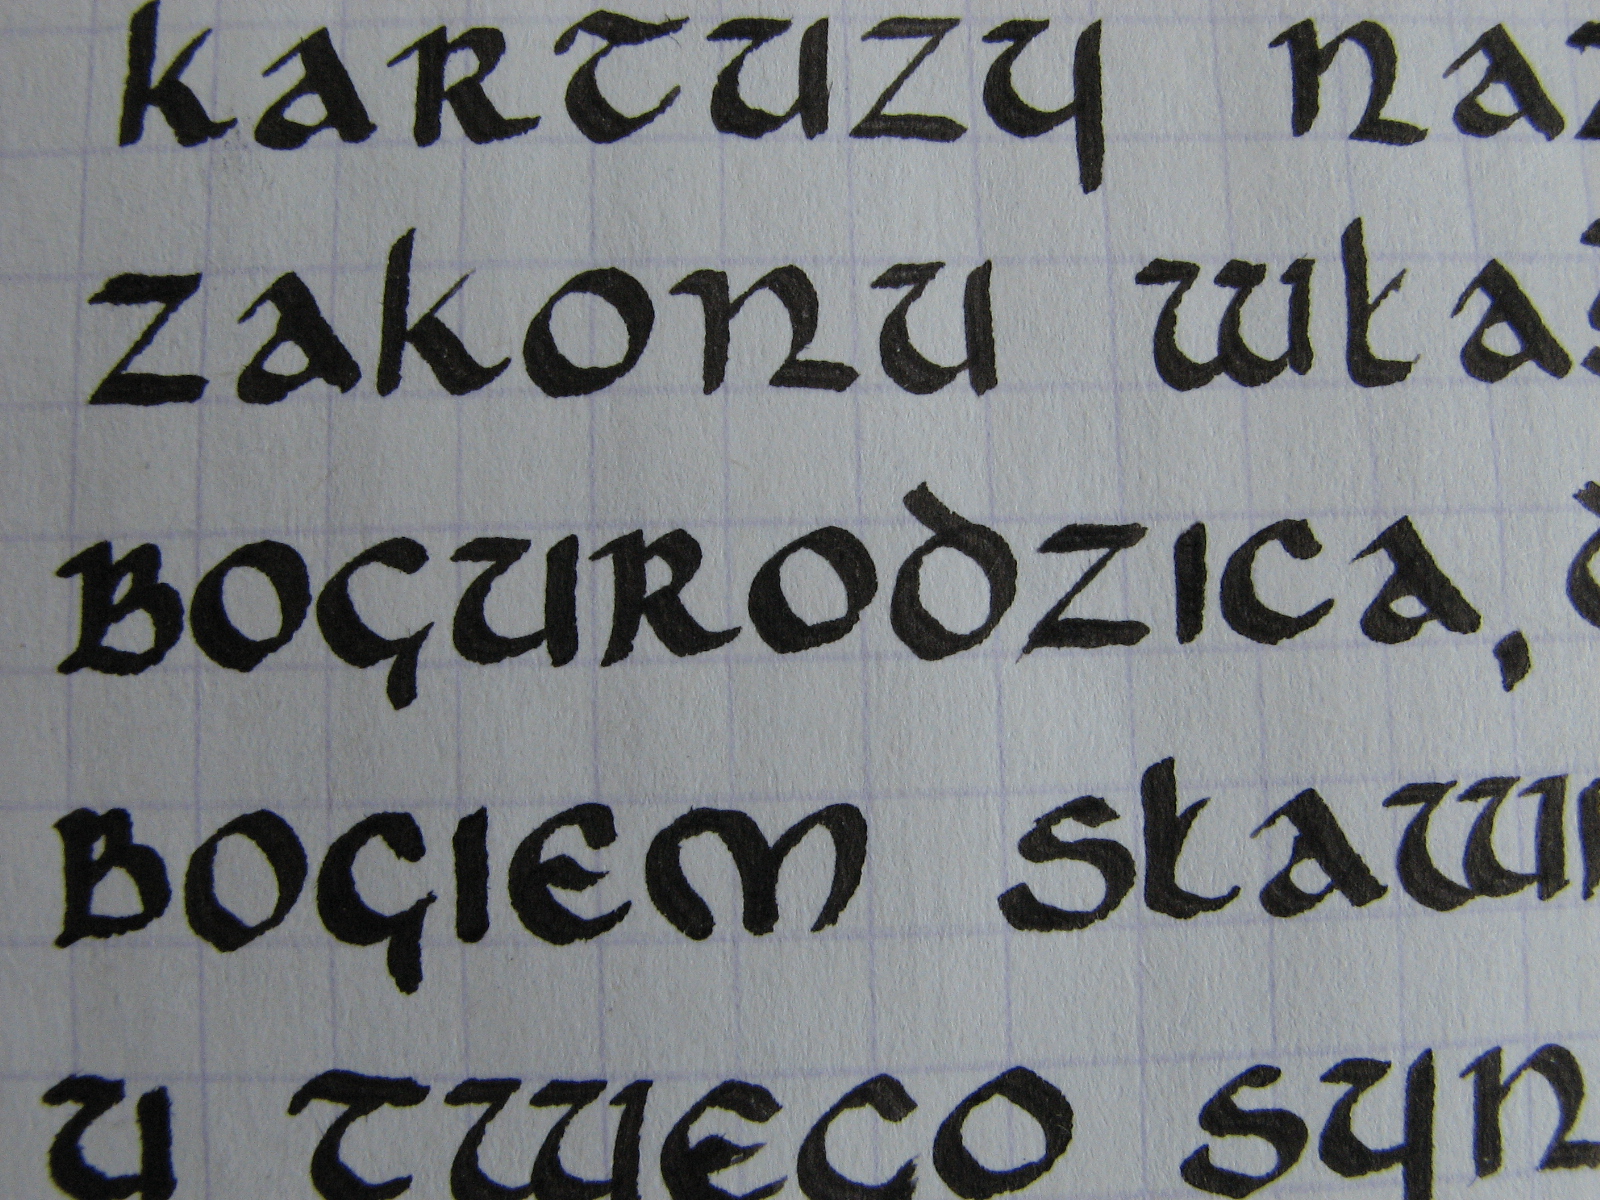 kartuzy naz
zakonu włas
Bogurodzica, d
Bogiem sławi
u twego syn